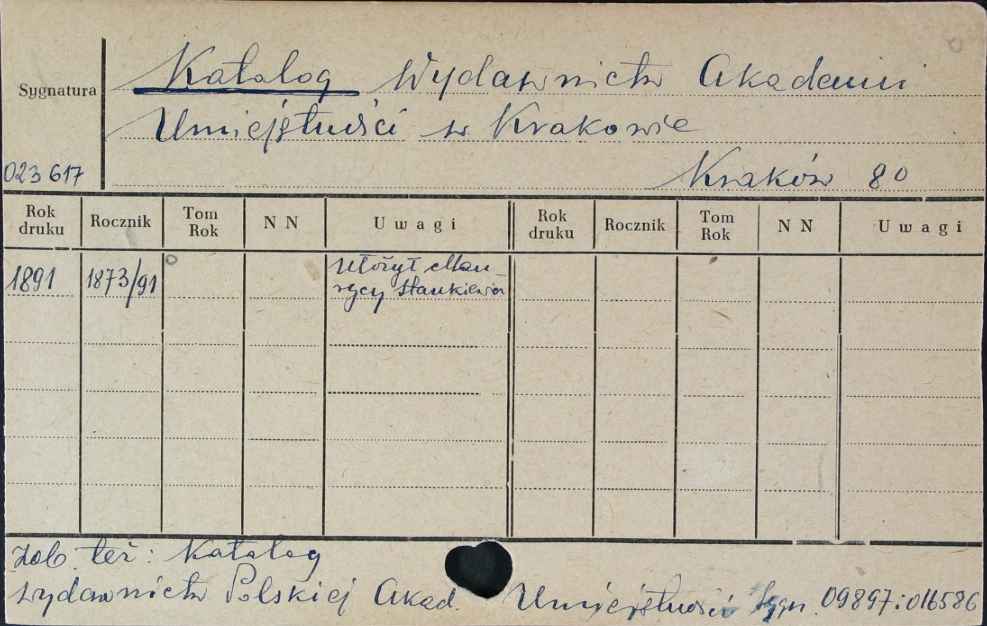 Sygnatura
Katalog Wydawnictw Akademii
Umiejętności w Krakowie
023617
Kraków 8°
Rok druku Rocznik Tom Rok NN Uwagi Rok druku Rocznik Tom Rok NN Uwagi
1891 1873/91 Ułożył Mau-
rycy Stankiewicz
Zob. też: Katalog
wydawnictw Polskiej Akad. Umiejętności Sygn. 09897; 016586